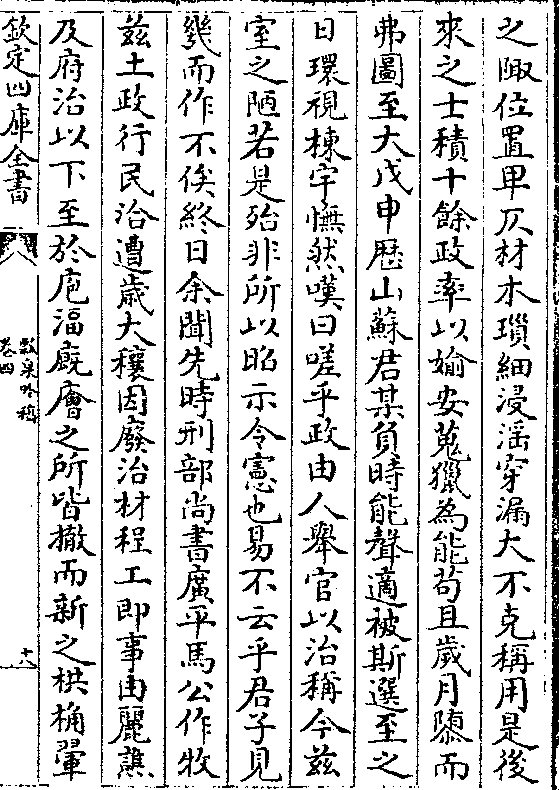 之陬位置卑仄材木瑣細浸滛穿漏大不克稱用是後
來之士積十餘政率以婾安蒐獵為能苟且歲月隳而
弗圖至大戊申歴山蘇君某負時能聲適被斯選至之
日環視棟宇憮然嘆曰嗟乎政由人舉官以治稱今兹
室之陋若是殆非所以昭示令憲也易不云乎君子見
幾而作不俟終日余聞先時刑部尚書廣平馬公作牧
兹土政行民洽遭歳大穰因廢治材程工即事由麗譙
及府治以下至於庖湢廐廥之所皆撤而新之栱桷翬
欽定四庫全書
卷四
十八